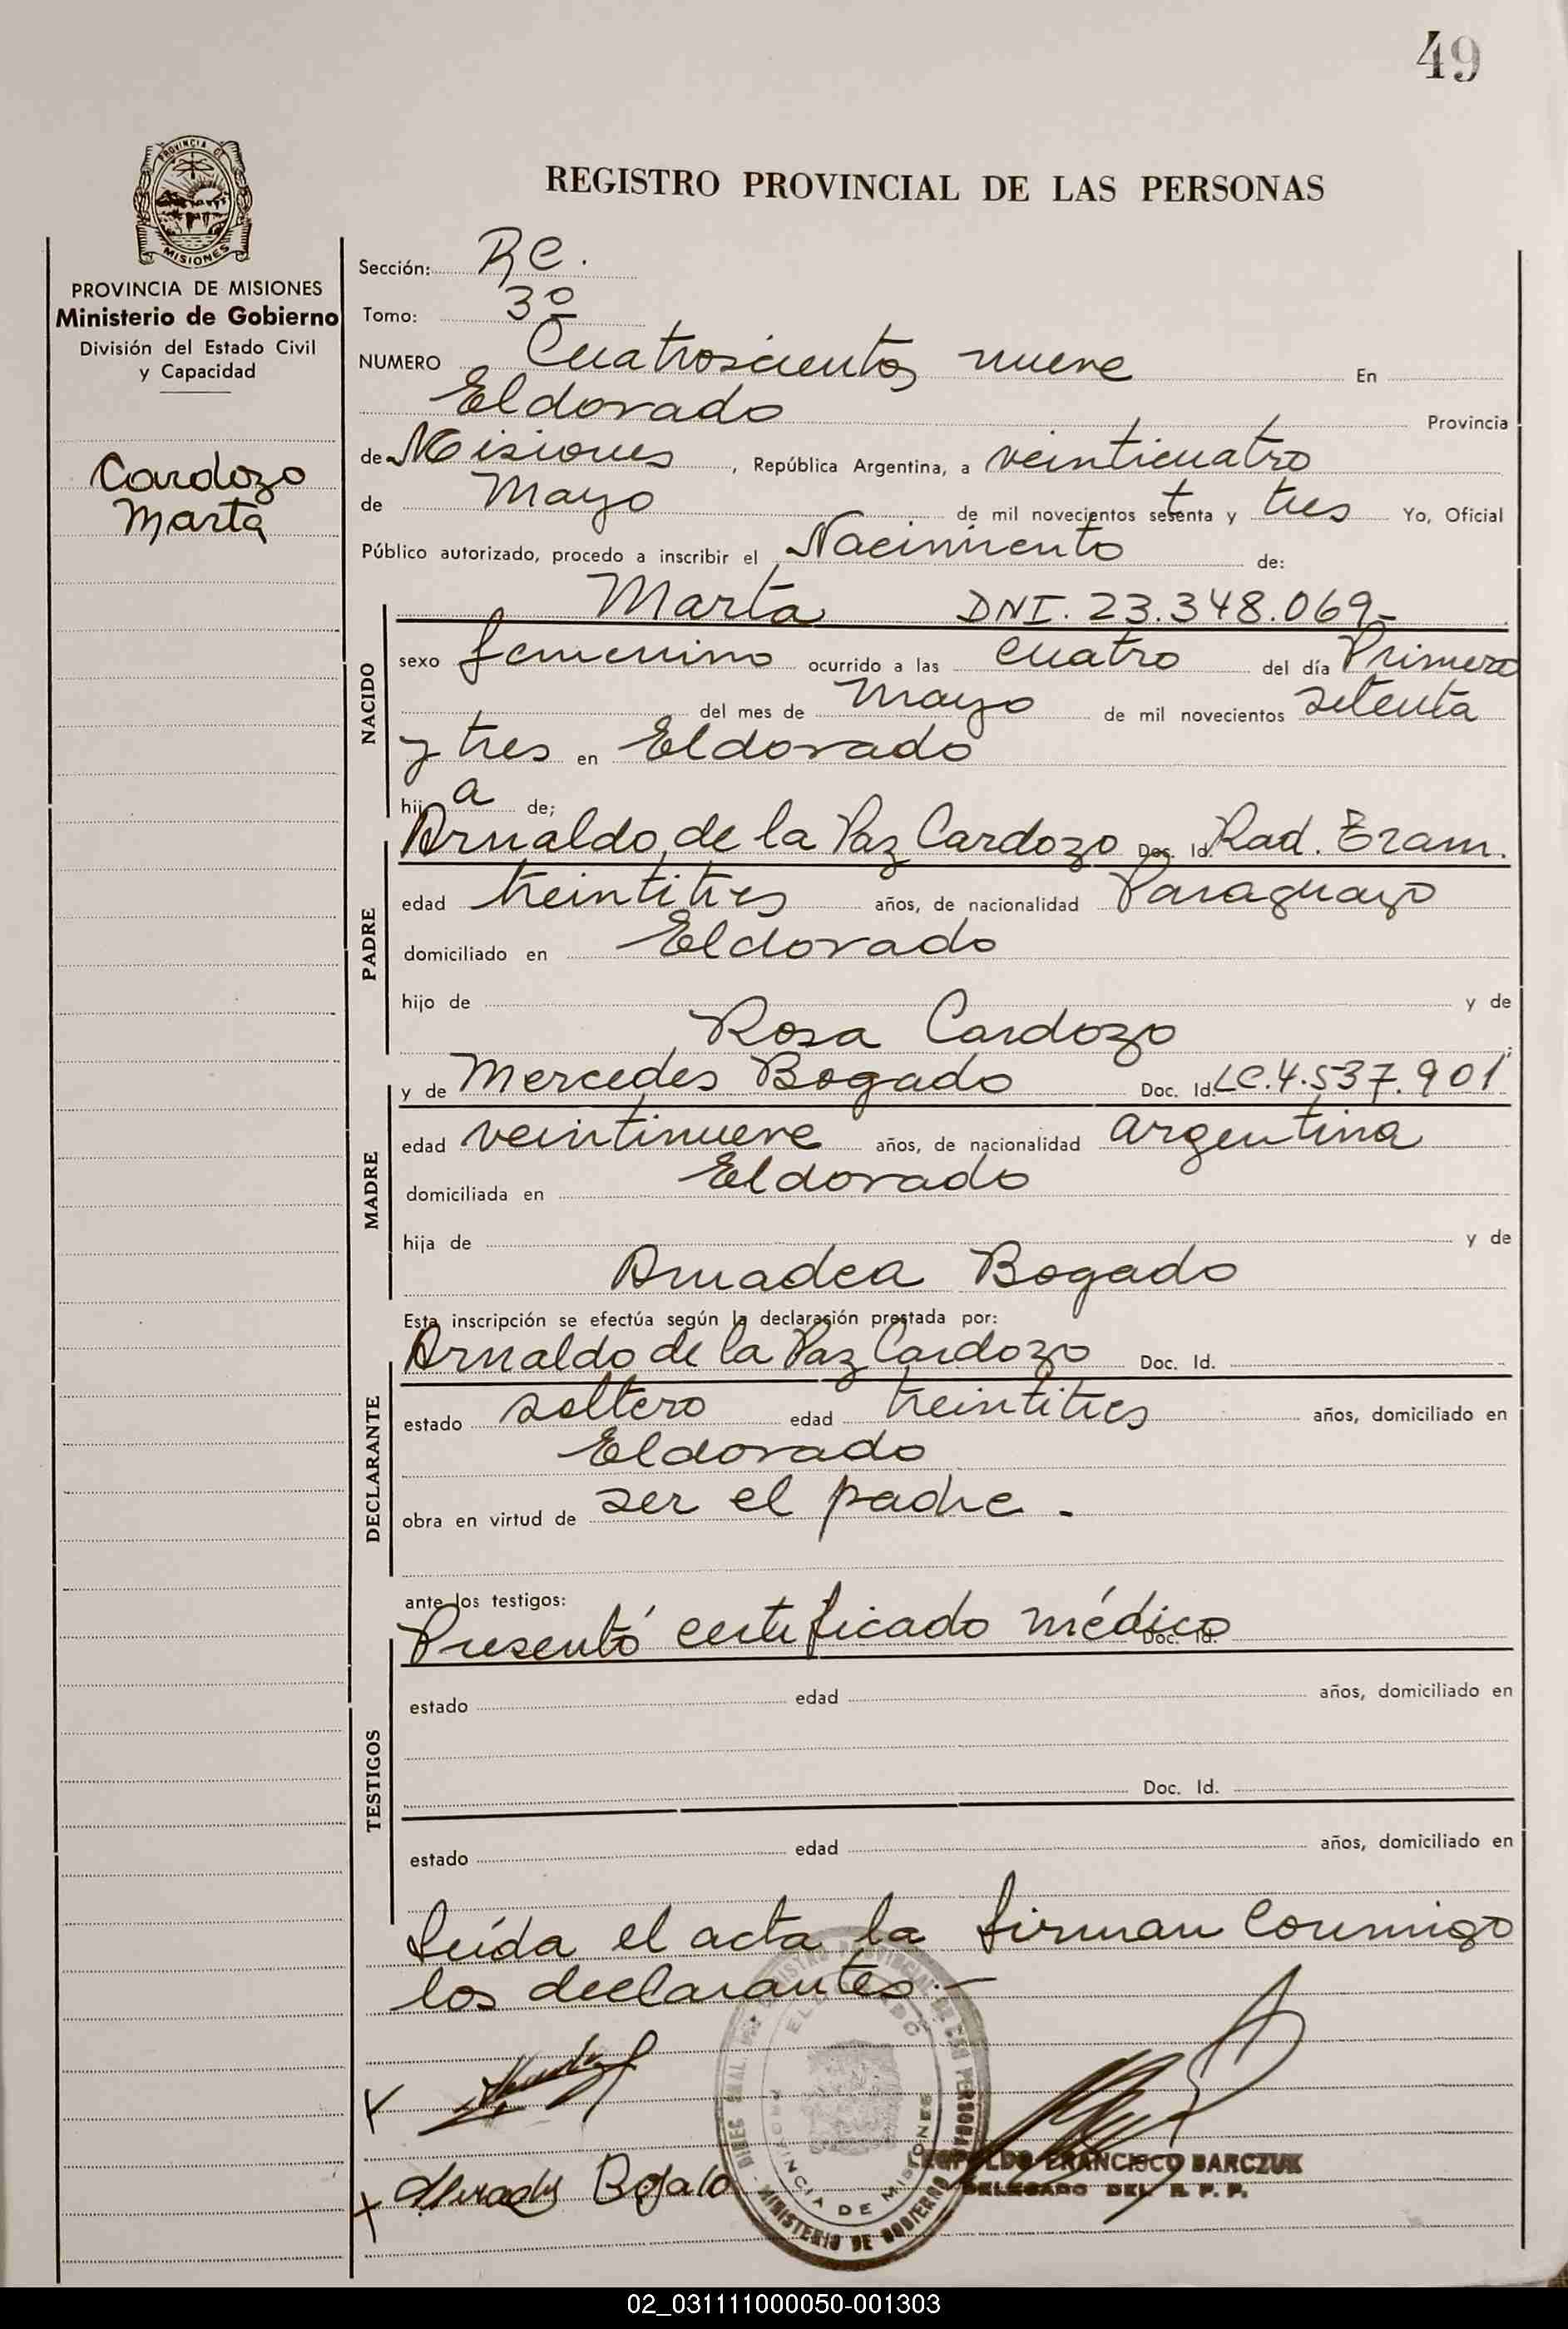 49
PROVINCIA DE
MISIONES
REGISTRO PROVINCIAL DE LAS PERSONAS
PROVINCIA DE MISIONES
Ministerio de Gobierno
División del Estado Civil
y Capacidad
Cardozo
Marta
Sección: RC.
Tomo: 3º
NUMERO Cuatroscientos nueve En
Eldorado Provincia
de Misiones, República Argentina, a veinticuatro
de Mayo de mil novecientos setenta y tres Yo, Oficial
Público autorizado, procedo a inscribir el Nacimiento de:
Marta DNI. 23.348.069-
NACIDO
sexo femenino ocurrido a las cuatro del día Primero
del mes de Mayo de mil novecientos setenta
y tres en Eldorado
hij a de;
Arnaldo de la Paz Cardozo Doc. Id. Rad. Eram.
PADRE
edad treintitres años, de nacionalidad Paraguayo
domiciliado en Eldorado
hijo de y de
Rosa Cardozo
y de Mercedes Bogado Doc. Id. LC.4.537.901
MADRE
edad veintinueve años, de nacionalidad argentina
domiciliada en Eldorado
hija de y de
Amadea Bogado
Esta inscripción se efectúa según la declaración prestada por:
Arnaldo de la Paz Cardozo Doc. Id.
DECLARANTE
estado soltero edad treintitres años, domiciliado en
Eldorado
obra en virtud de ser el padre -
ante los testigos:
Presentó certificado médico Doc. Id.
TESTIGOS
estado edad años, domiciliado en
Doc. Id.
estado edad años, domiciliado en
Leída el acta la firman conmigo
los declarantes.-
ELDORADO
PROVINCIA DE MISIONES
MINISTERIO DE GOBIERNO
Bogado
LEOPOLDO FRANCISCO BARCZUK
DELEGADO DEL R. P. P.
02_031111000050-001303